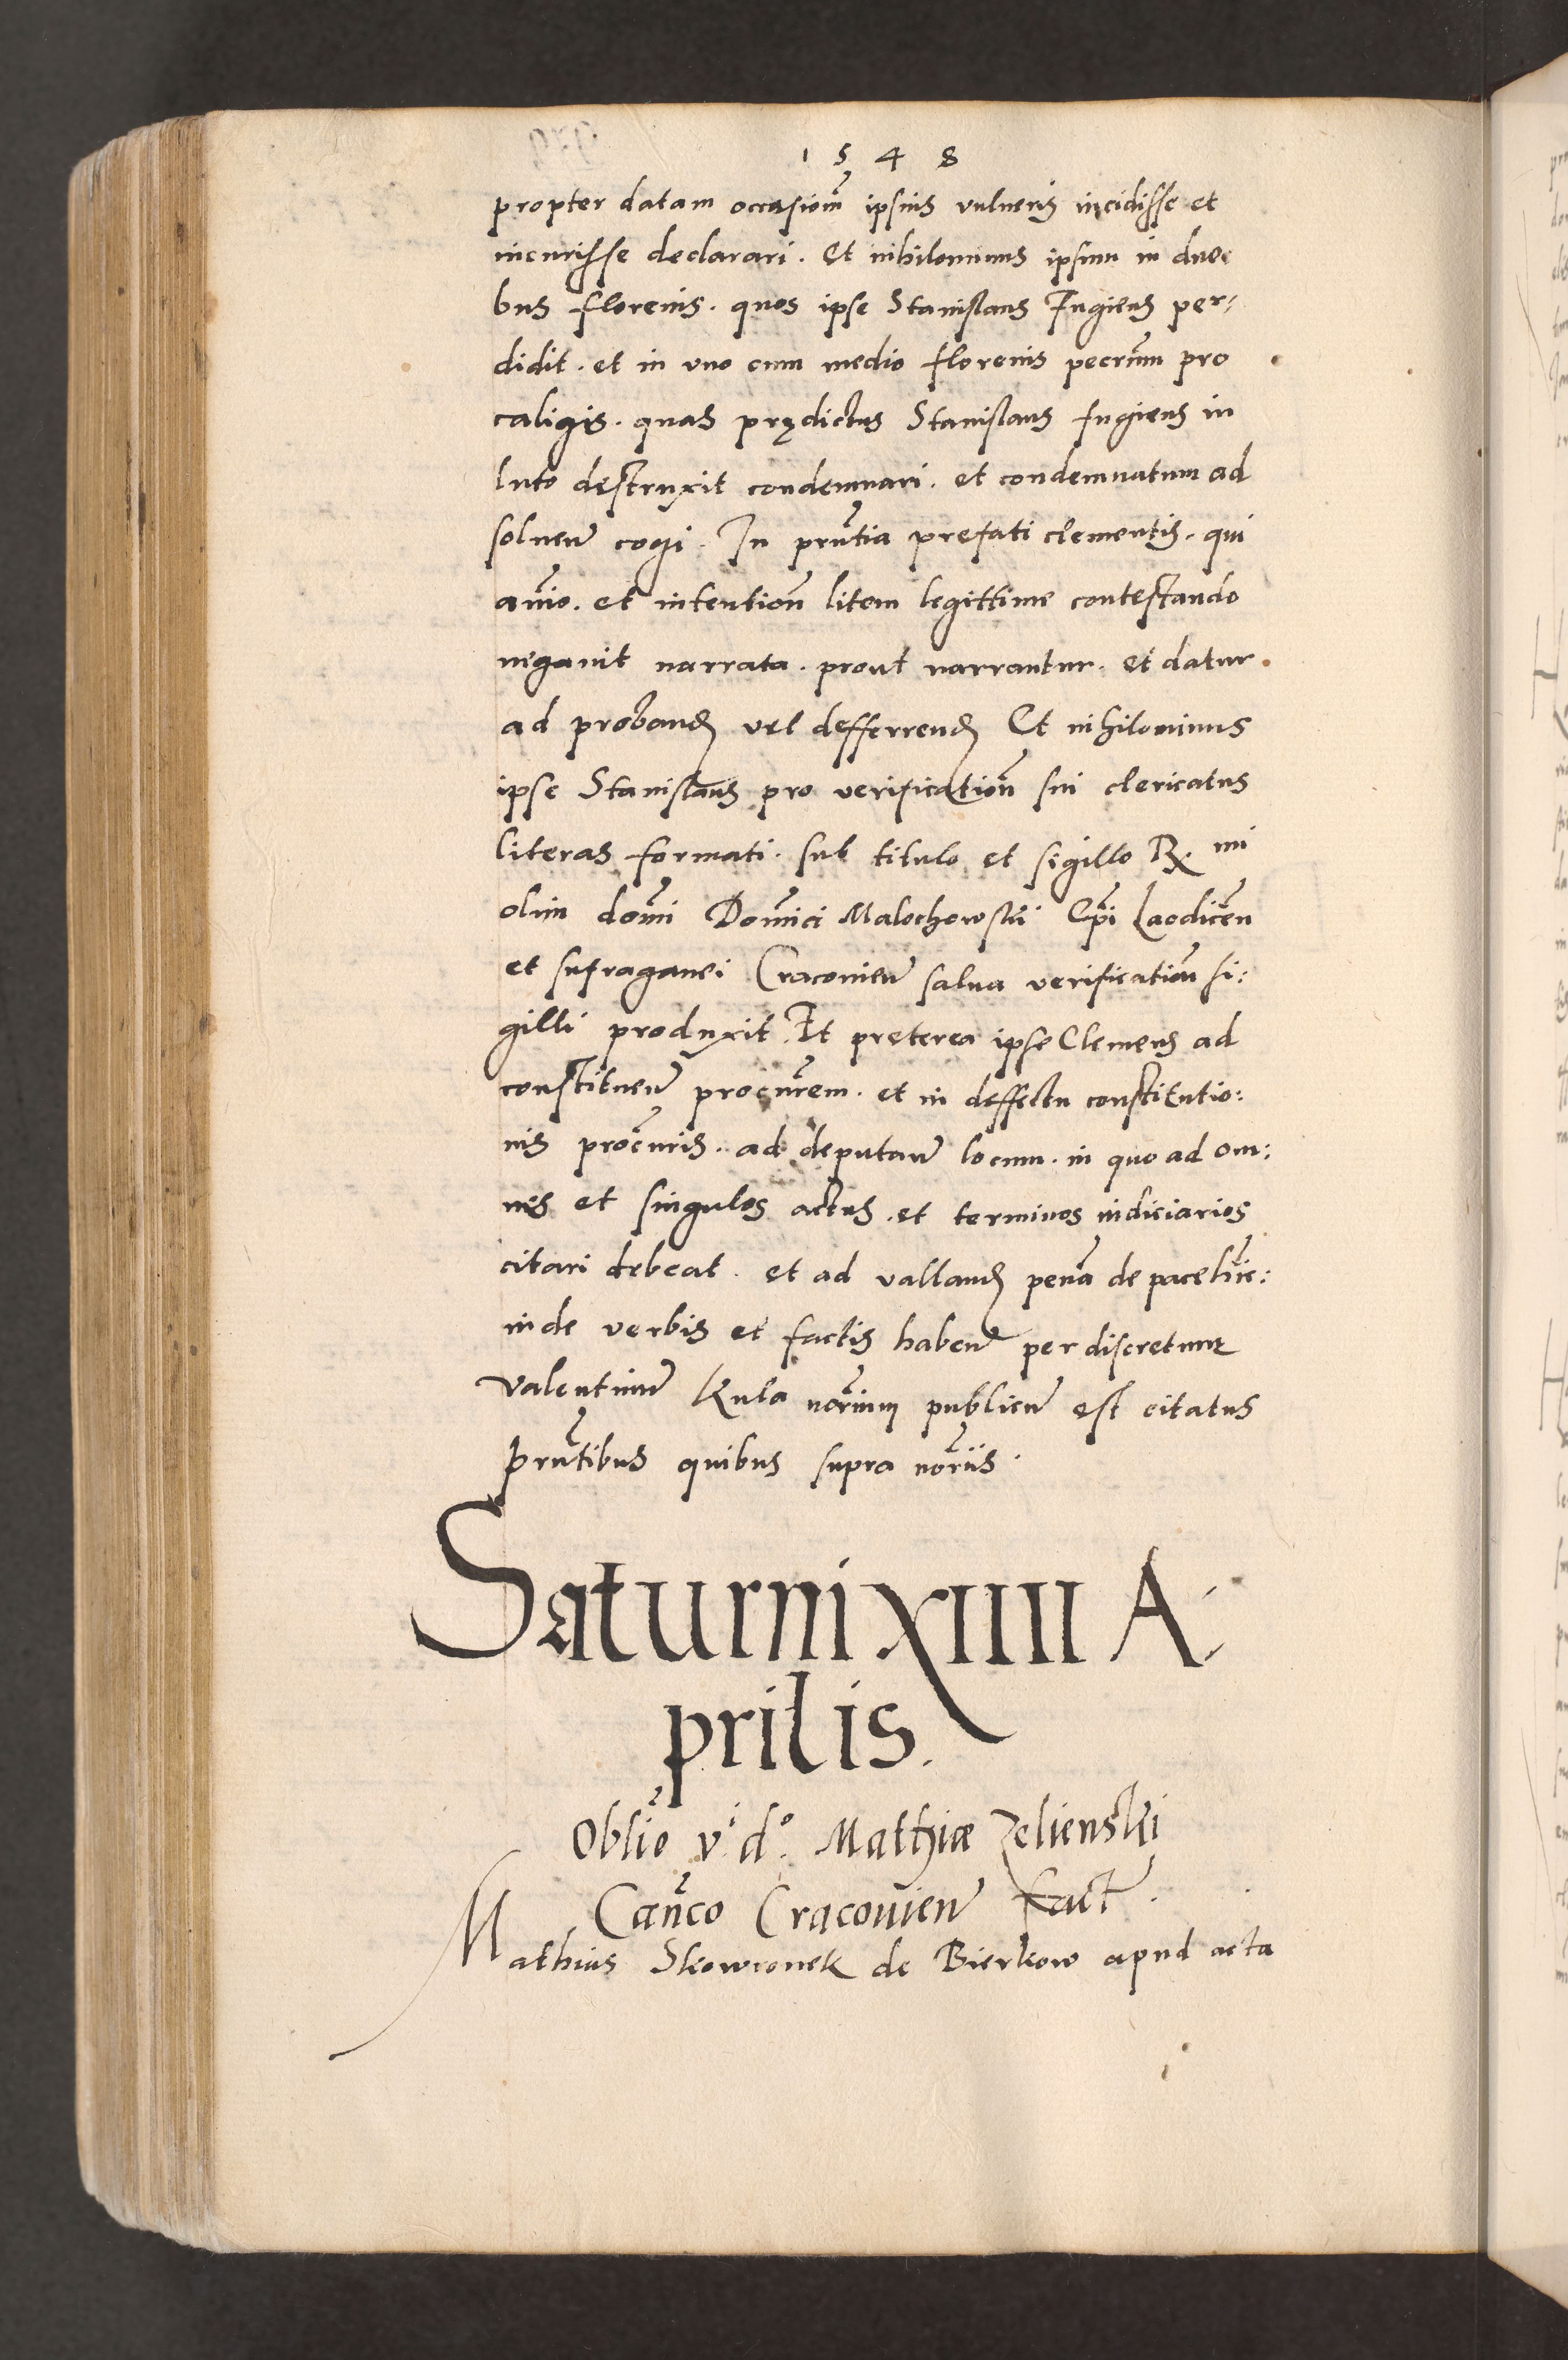 1548
propter datam occasionẽ ipsius vulneris incidisse et
incurisse declarari. Et nihilominus ipsum in duo
bus florenis. quos ipse Stanislaus Fugiens per-
didit. et in vno cum medio florenis pecũm pro
caligis. quas prędictus Stanislaus fugiens in
luto destruxit condemnari. et condemnatum ad
soluen̄ cogi. In prñtia prefati clementis. qui
animo. et intention̄ litem legittime contestando
negauit narrata. prout narrantur. et datur.
ad proband vel defferrend Et nihilominus
ipse Stanislaus pro verification̄ sui clericatus
literas formati. sub titulo et sigillo R. mi
olim domĩ Domĩci Malochowski Epĩ Laodiceñ
et sufraganei Cracouien̄ salua verification̄ si:
gilli produxit. Et preterea ipse Clemens ad
constituen̄ procurẽm. et in deffectu constitutio:
nis procũris. ad deputan̄ locum. in quo ad om:
nes et singulos actus. et terminos iudiciarios
citari debeat. et ad valland penã de pace hĩc:
inde verbis et factis haben̄ per discretum
Valentinũ Kula norĩum publicũ est citatus
prñtibus quibus supra norĩis.
Saturni XIIII A
prilis.
Oblĩo v. d. Mathiæ Zelienski
Canĉo Cracouien̄ Fact̄.
Mathias Skowronek de Bierkow apud acta